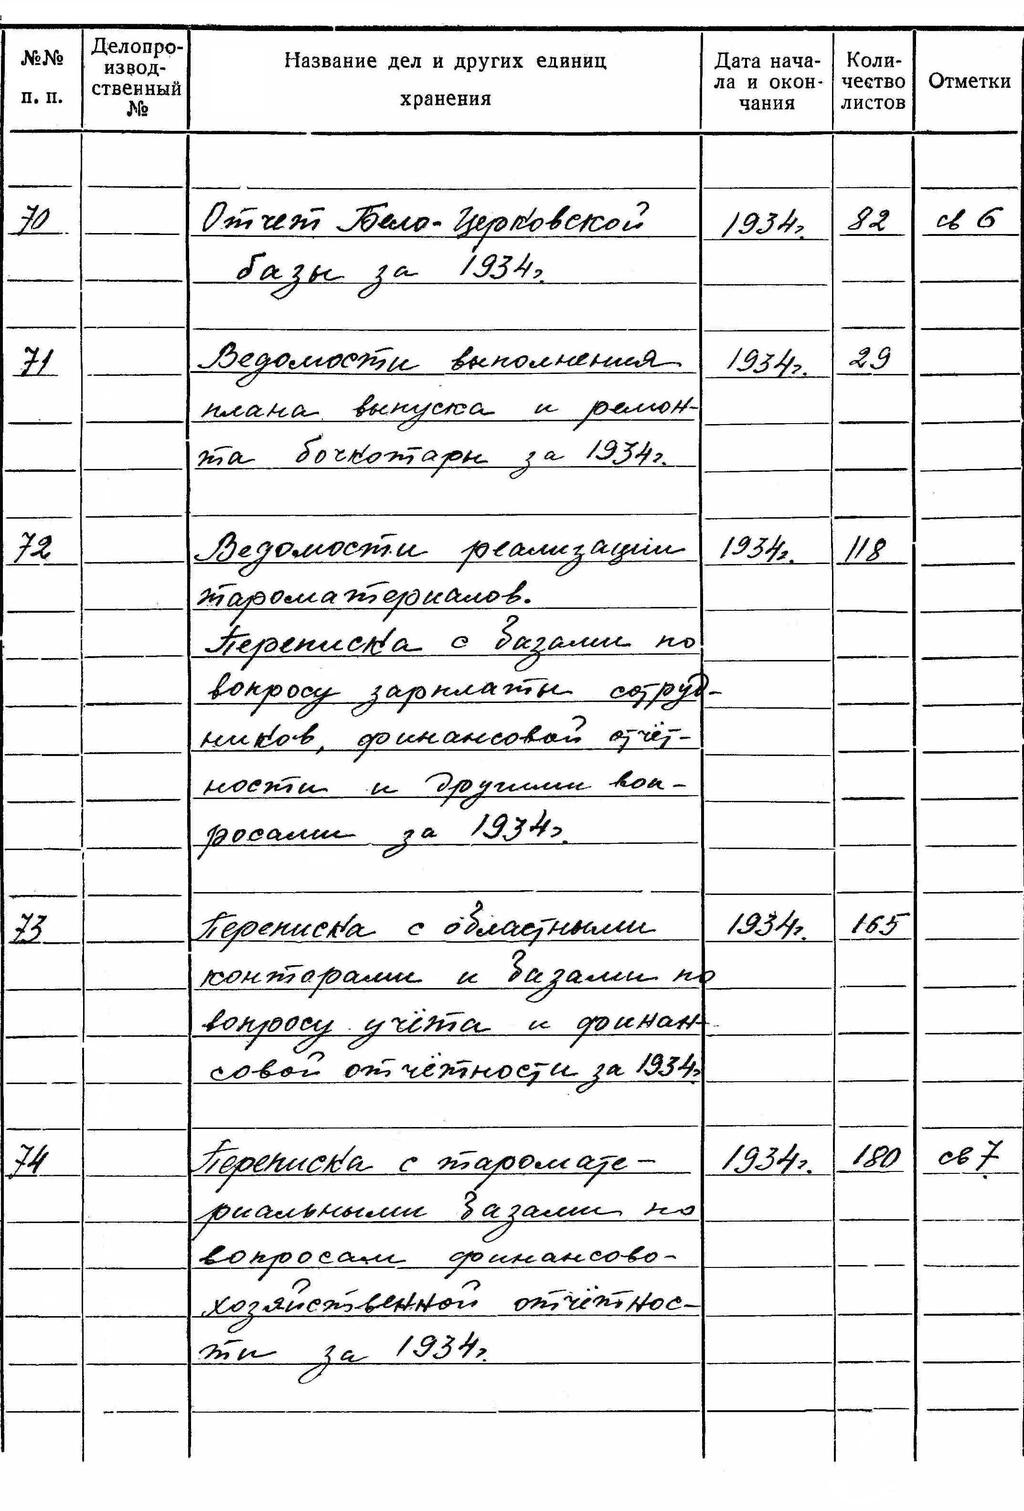 №№ п. п. Делопроизводственный № Название дел и других единиц хранения Дата начала и окончания Количество листов Отметки
70 Отчет Бело-Церковской 1934г. 82 св 6
базы за 1934г.
71 Ведомости выполнения 1934г. 29
плана выпуска и ремон-
та бочкотары за 1934г.
72 Ведомости реализации 1934г. 118
тароматериалов.
Переписка с базами по
вопросу зарплаты сотруд-
ников, финансовой отчёт-
ности и другими воп-
росами за 1934г.
73 Переписка с областными 1934г. 165
конторами и базами по
вопросу учёта и финан-
совой отчётности за 1934г.
74 Переписка с таромате- 1934г. 180 св 7
риальными базами по
вопросам финансово-
хозяйственной отчётнос-
ти за 1934г.